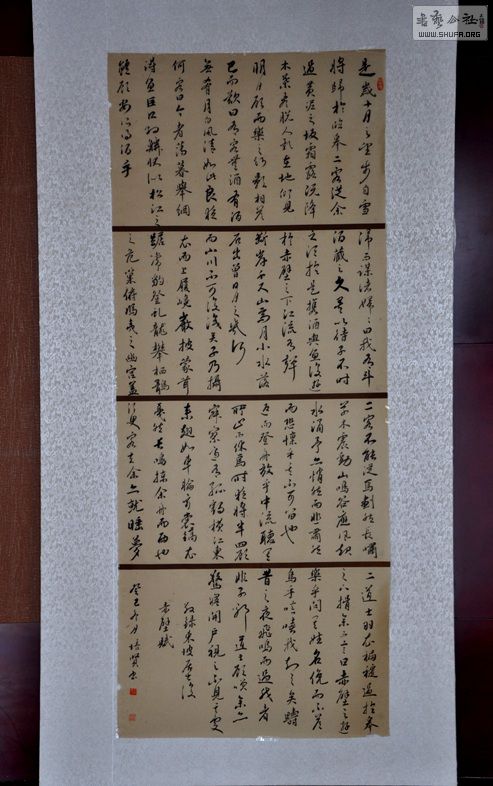 書藝公社
WWW.SHUFA.ORG
是歲十月之望步自雪
將歸於臨皋二客從余
過黃泥之坂霜露既降
木葉盡脫人影在地仰見
明月顧而樂之行歌相答
已而歎曰有客無酒有酒
無肴月白風清如此良夜
何客曰今者薄暮舉網
得魚巨口細鱗狀似松江之
鱸顧安所得酒乎
歸而謀諸婦婦曰我有斗
酒藏之久矣以待子不時
之須於是攜酒與魚復遊
於赤壁之下江流有聲
斷岸千尺山高月小水落
石出曾日月之幾何
而山川不可復識矣予乃攝
衣而上履巉巖披蒙茸
踞虎豹登虬龍攀栖鶻
之危巢俯馮夷之幽宮蓋
二客不能從焉劃然長嘯
草木震動山鳴谷應風起
水涌予亦悄然而悲肅然
而恐懍乎其不可留也
反而登舟放乎中流聽其
所止而休焉時夜將半四顧
寂寥適有孤鶴橫江東
來翅如車輪玄裳縞衣
戛然長鳴掠余舟而西也
須臾客去余亦就睡夢
二道士羽衣蹁躚過臨皋
之下揖余而言曰赤壁之遊
樂乎問其姓名俛而不答
嗚乎噫嘻我知之矣疇
昔之夜飛鳴而過我者
非子耶道士顧笑余亦
驚寤開戶視之不見其處
敬錄東坡居士後
赤壁賦
癸巳冬月培賢書